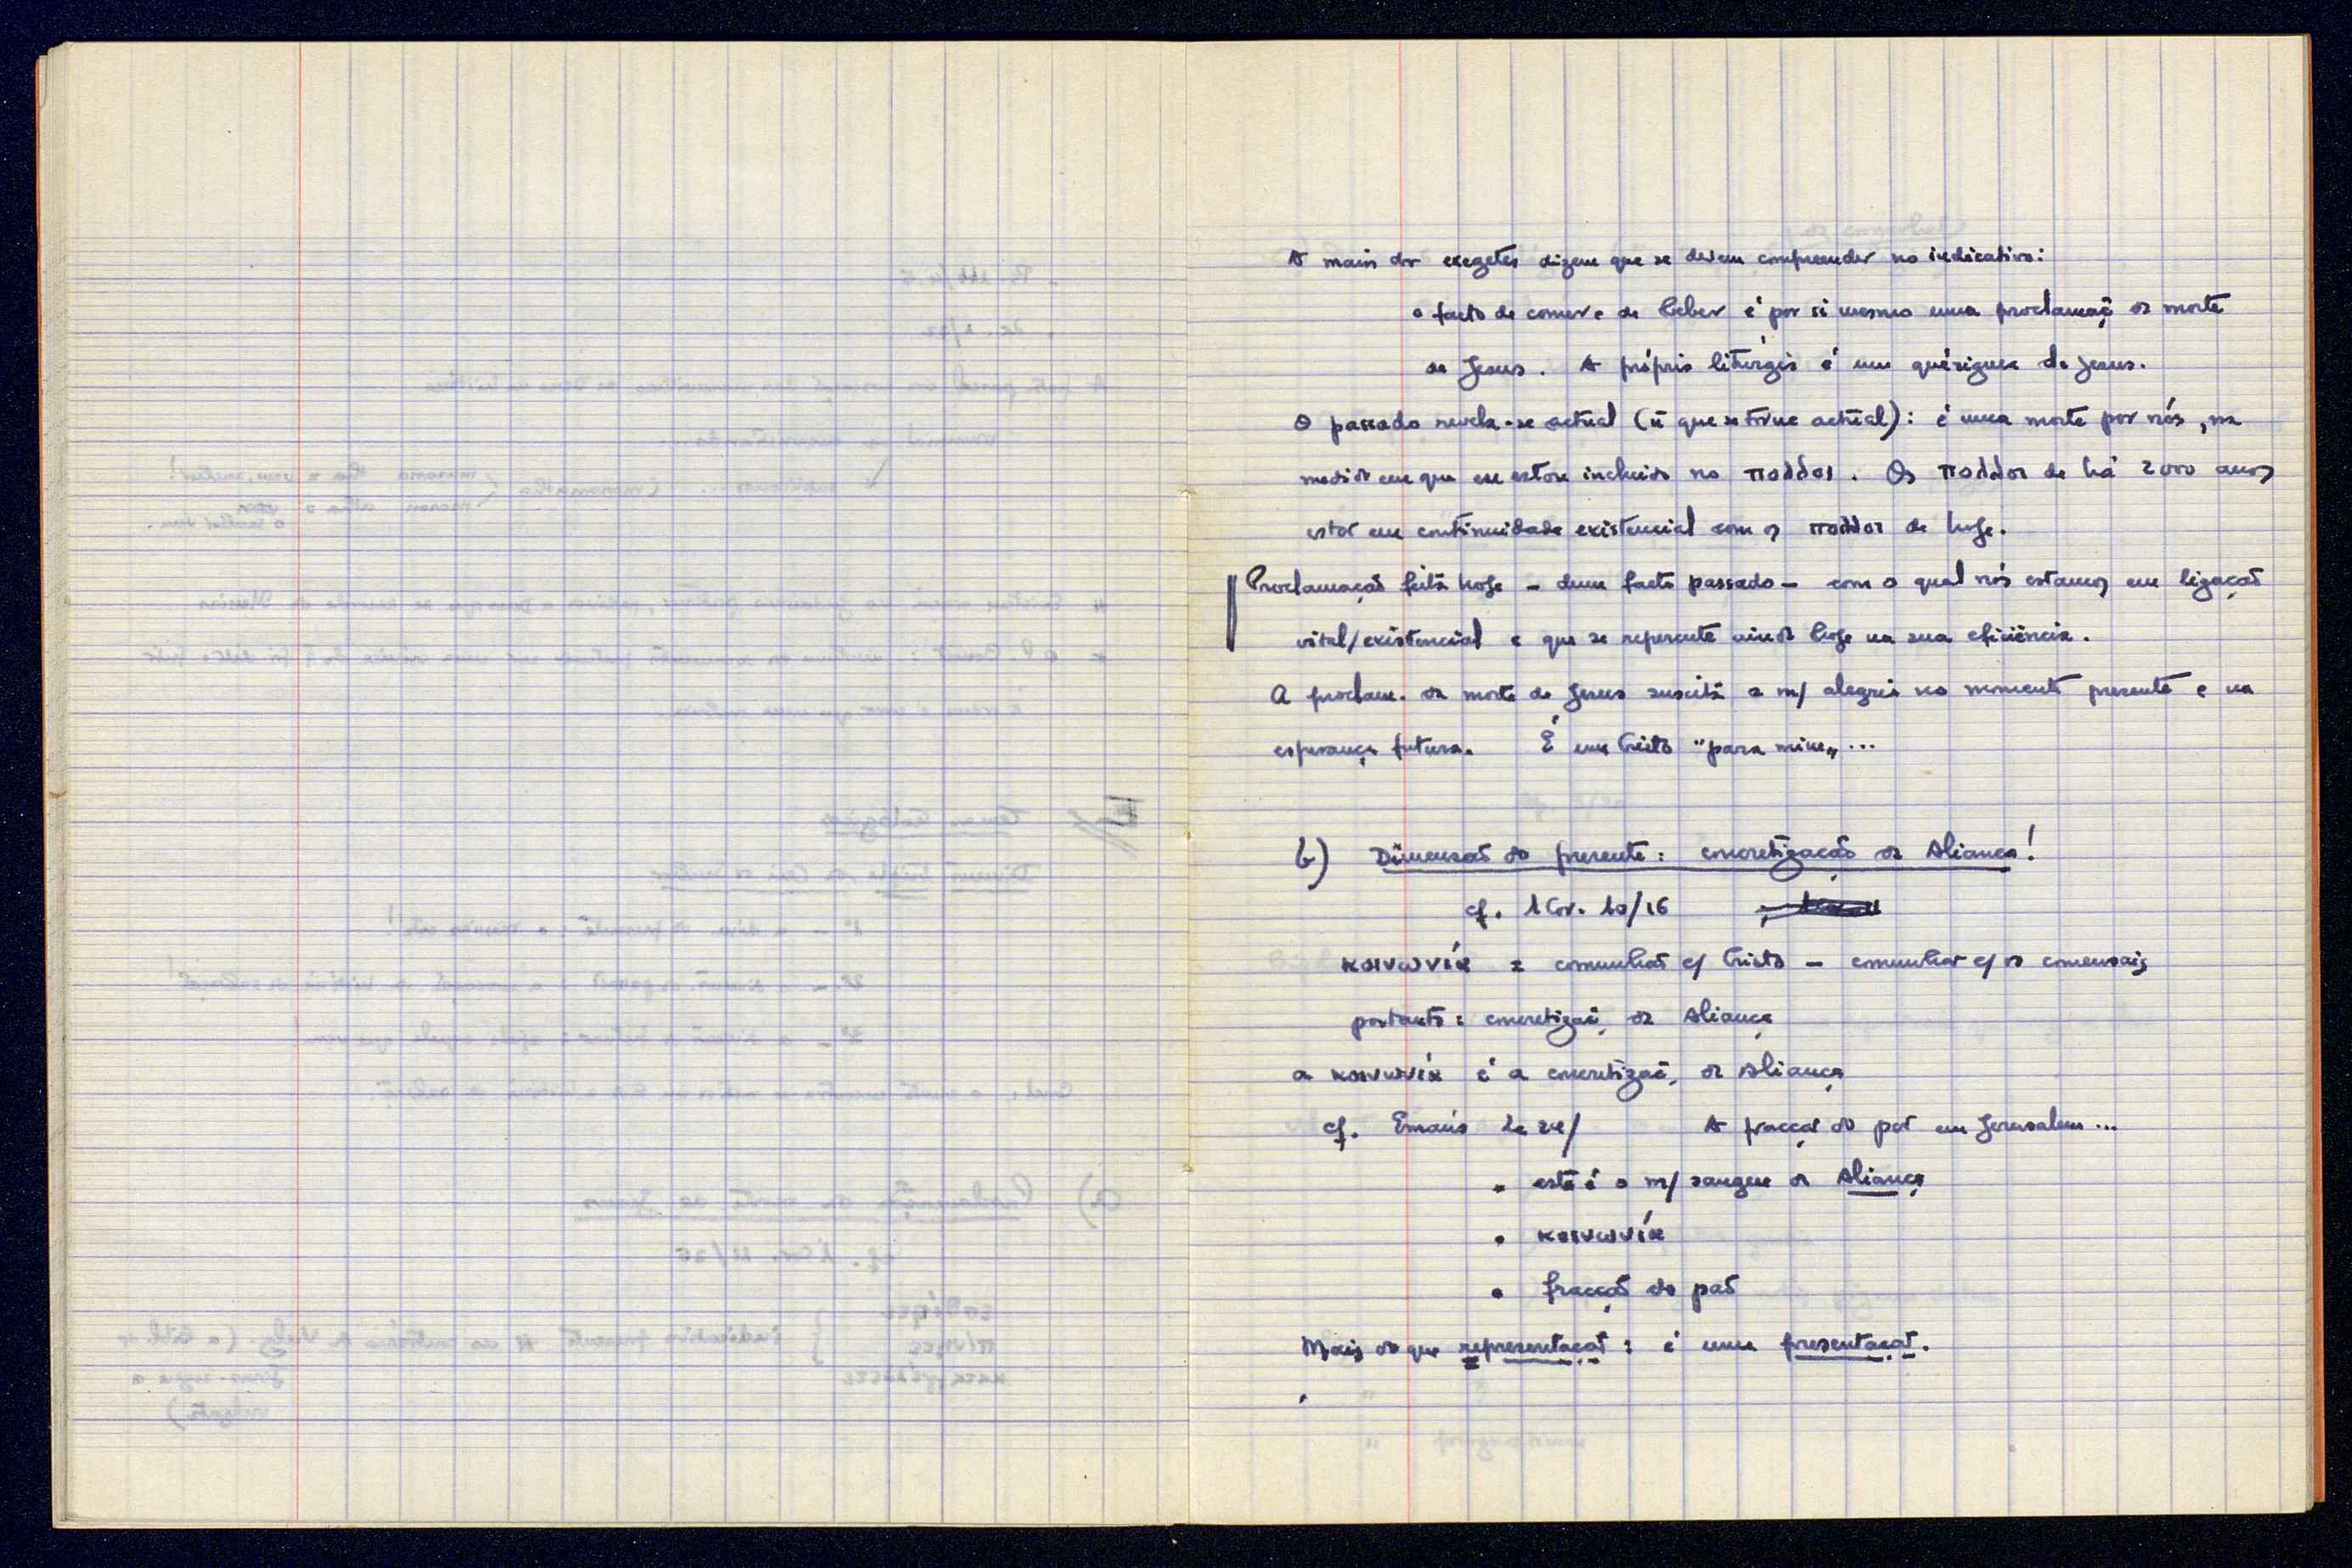 A maior dos exegetas dizem que se devem compreender no indicativo:
o facto de comer e de beber é por si mesmo uma proclamaçã da morte
de Jesus. A própria liturgia é um quérigma de Jesus.
O passado revela-se actual (ũ que se torne actual): é uma morte por nós, na
medida em que eu estou incluido no πολλοι. Os πολλοι de há 2000 anos
estão em continuidade existencial com os πολλοι de hoje.
Proclamação feita hoje – dum facto passado – com o qual nós estamos em ligação
vital/existencial e que se repercute ainda hoje na sua eficiência.
A proclam. da morte de Jesus suscita a m/ alegria no momento presente e na
esperança futura. É um Cristo "para mim"...
b) Dimensão do presente: concretização da Aliança!
cf. 1 Cor. 10/16
κοινωνία = comunhão c/ Cristo – comunhão c/ os comensais
portanto: concretizaçã da Aliança
a κοινωνία é a concretizaçã da Aliança
cf. Emaús Lc 24/ A fracção do pão em Jerusalem...
• este é o m/ sangue da Aliança
• κοινωνία
• fracção do pão
Mais do que representação: é uma presentação.